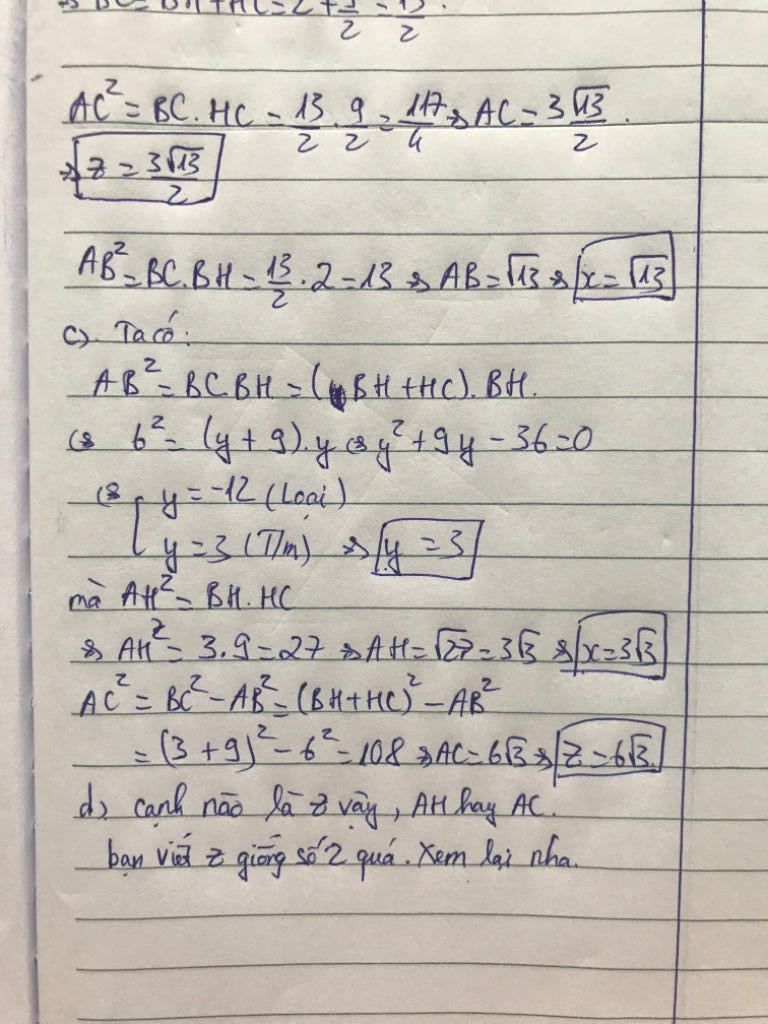 ⇒ BC = BH + HC = 2 + 9/2 = 13/2.
AC² = BC. HC = 13/2 . 9/2 = 117/4 ⇒ AC = 3√13/2.
⇒ z = 3√13/2
AB² = BC.BH = 13/2 . 2 = 13 ⇒ AB = √13 ⇒ x = √13
c). Ta có:
AB² = BC.BH = (BH + HC). BH.
⇔ 6² = (y + 9). y ⇔ y² + 9y - 36 = 0
⇔ [ y = -12 (Loại)
y = 3 (T/m) ⇒ y = 3
mà AH² = BH. HC
⇒ AH² = 3.9 = 27 ⇒ AH = √27 = 3√3 ⇒ x = 3√3
AC² = BC² - AB² = (BH + HC)² - AB²
= (3 + 9)² - 6² = 108 ⇒ AC = 6√3 ⇒ z = 6√3.
d). cạnh nào là z vậy, AH hay AC.
bạn viết z giống số 2 quá. Xem lại nha.